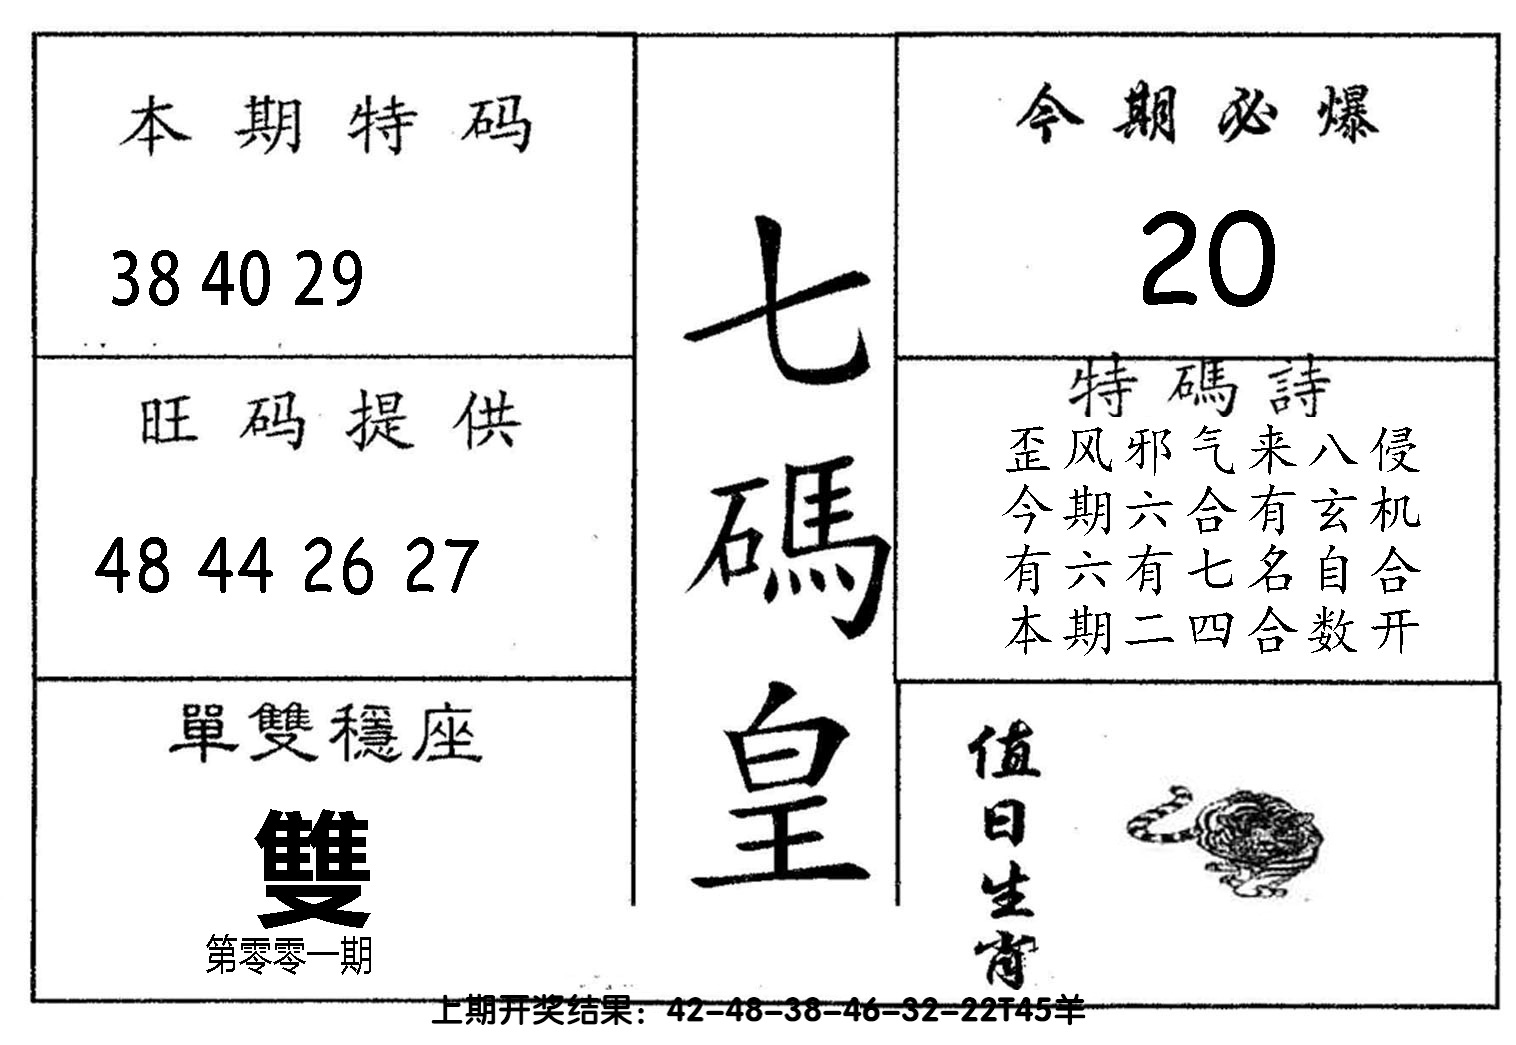 本期特码
38 40 29
旺码提供
48 44 26 27
單雙穩座
雙
第零零一期
七
碼
皇
今期必爆
20
特碼詩
歪风邪气来八侵
今期六合有玄机
有六有七名自合
本期二四合数开
值
日
生
肖
上期开奖结果：42-48-38-46-32-22T45羊